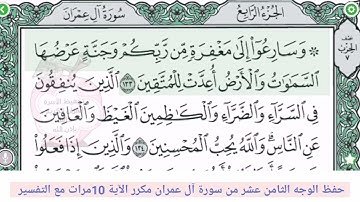 الجزء الرابع
سورة آل عمران
۞ وَسَارِعُوٓا۟ إِلَىٰ مَغْفِرَةٍ مِّن رَّبِّكُمْ وَجَنَّةٍ عَرْضُهَا
ٱلسَّمَٰوَٰتُ وَٱلْأَرْضُ أُعِدَّتْ لِلْمُتَّقِينَ ١٣٣ ٱلَّذِينَ يُنفِقُونَ
فِى ٱلسَّرَّآءِ وَٱلضَّرَّآءِ وَٱلْكَٰظِمِينَ ٱلْغَيْظَ وَٱلْعَافِينَ
عَنِ ٱلنَّاسِ ۗ وَٱللَّهُ يُحِبُّ ٱلْمُحْسِنِينَ ١٣٤ وَٱلَّذِينَ إِذَا فَعَلُوا۟
حفظ الوجه الثامن عشر من سورة آل عمران مكرر الاية 10مرات مع التفسير